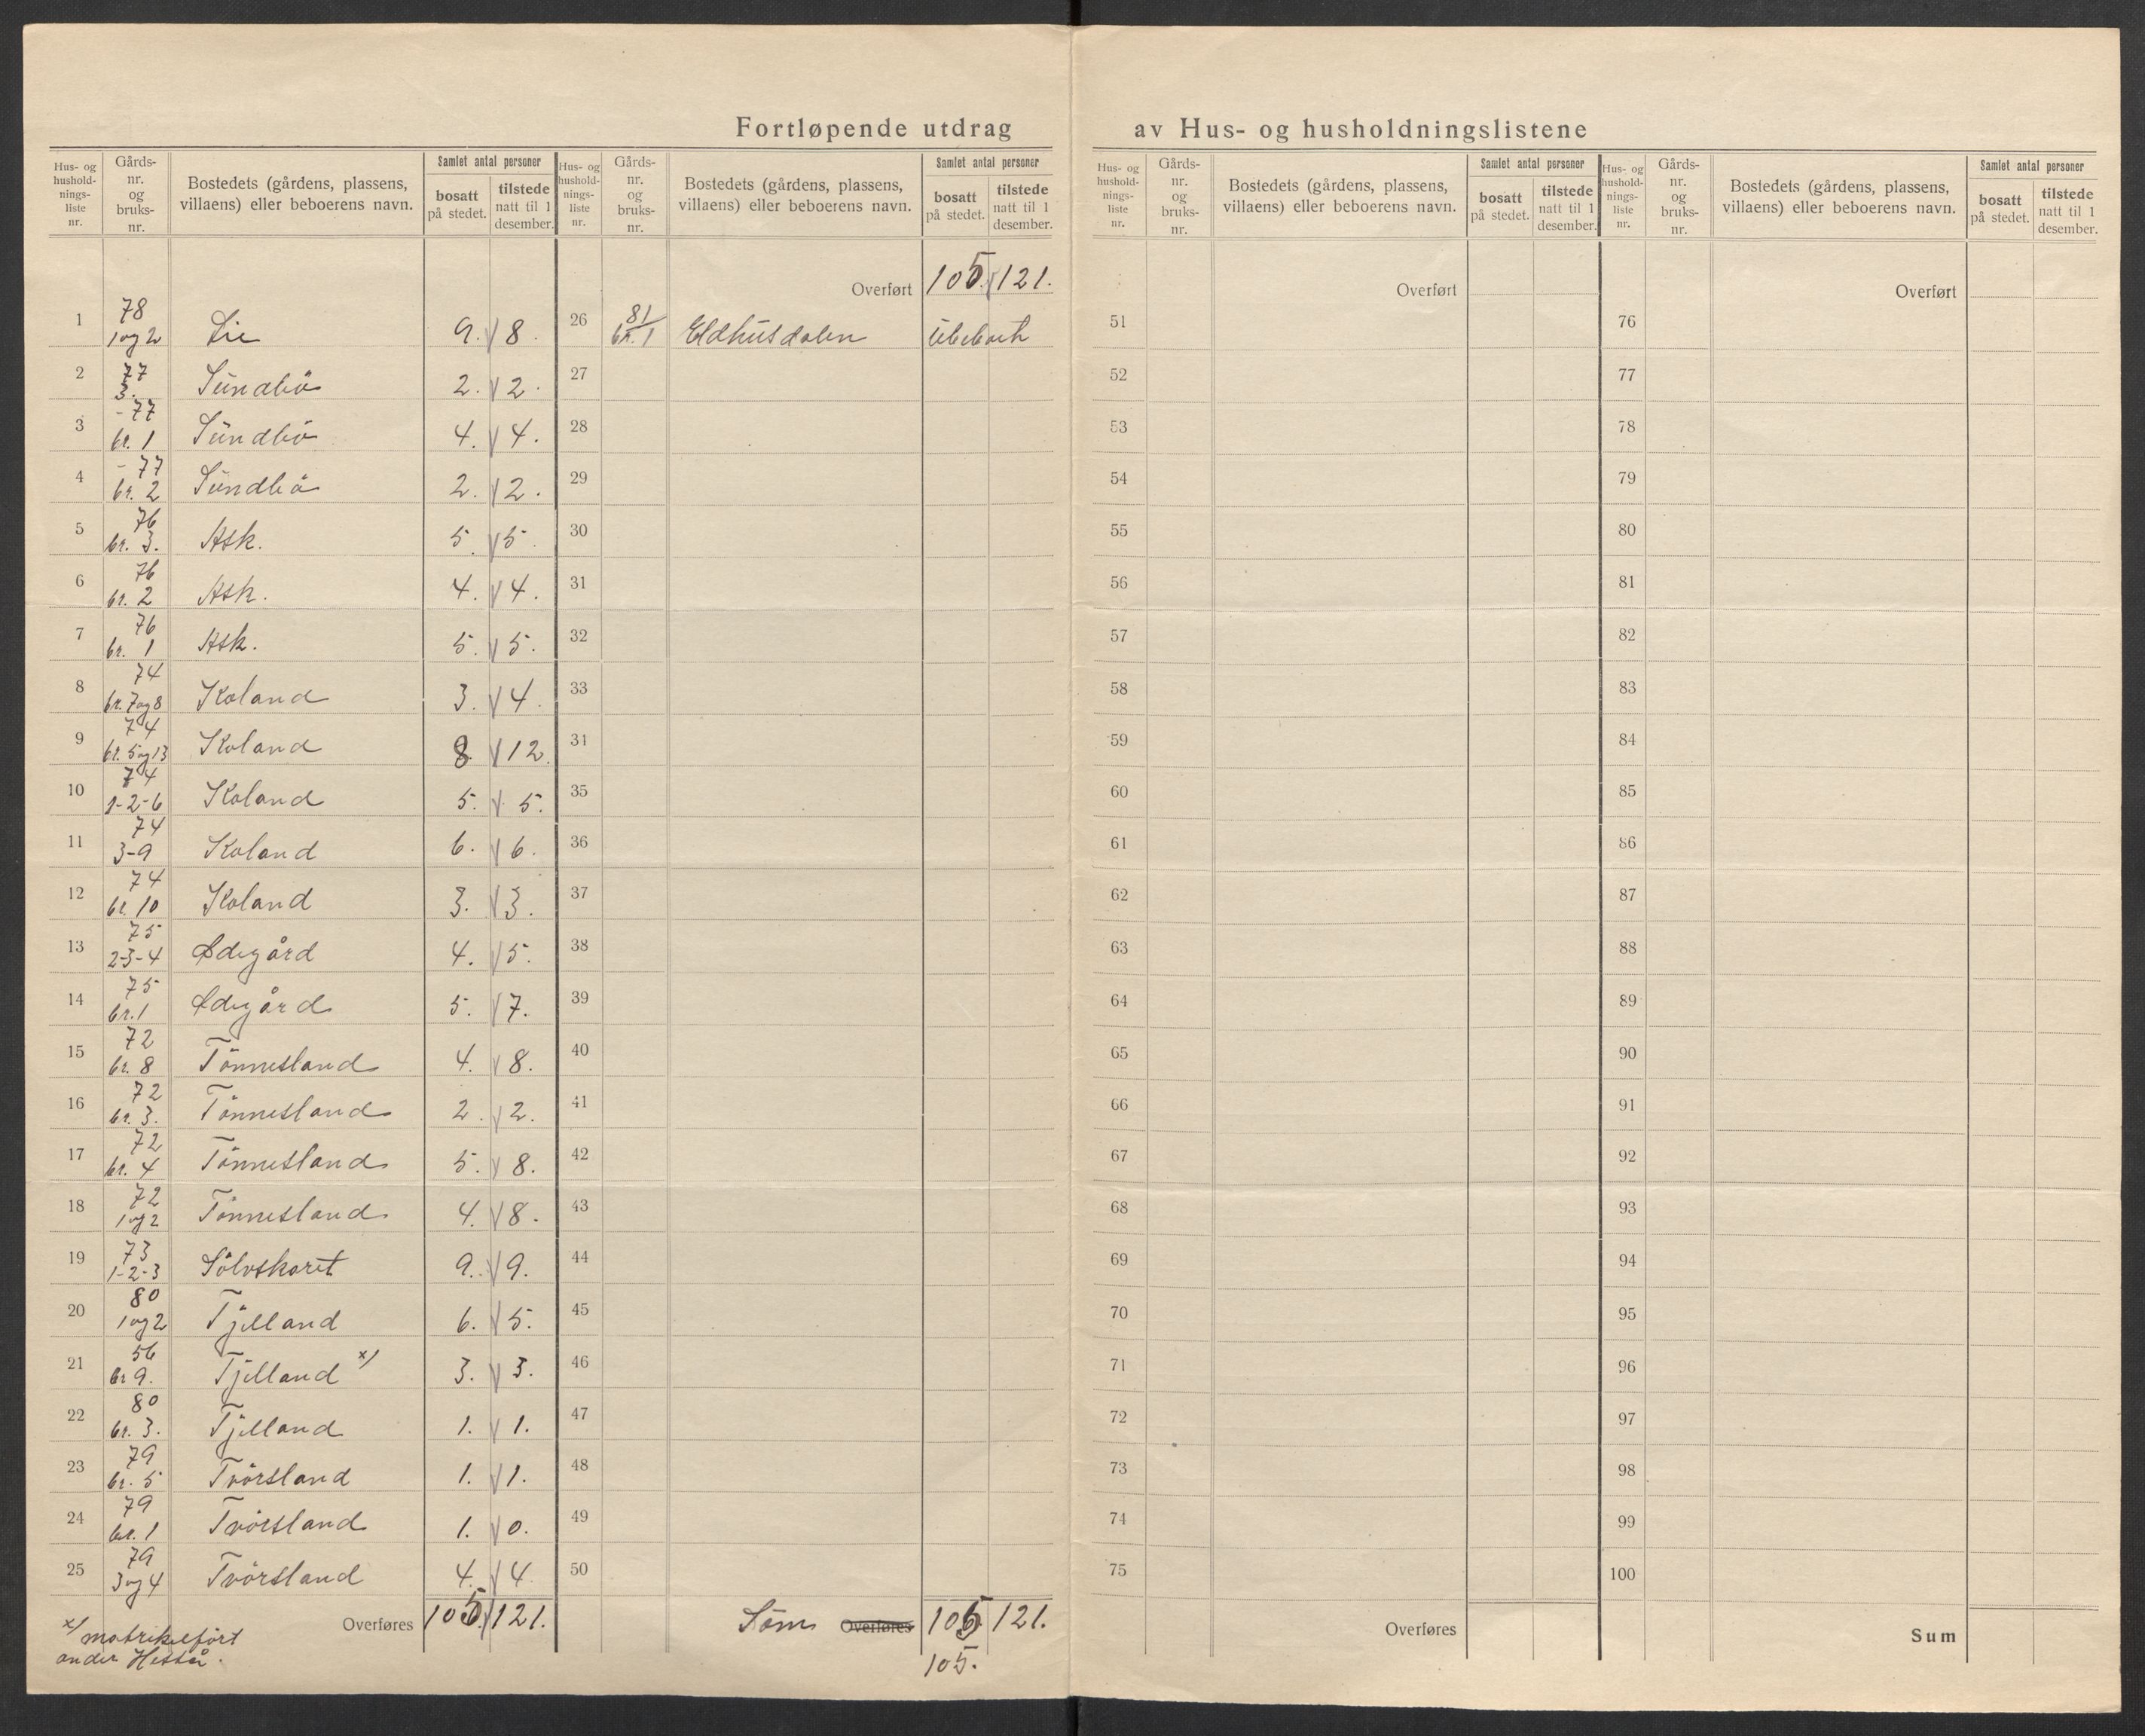 Fortløpende utdrag av Hus- og husholdningslistene
Hus- og hushold-nings-liste nr. | Gårds-nr. og bruks-nr. | Bostedets (gårdens, plassens, villaens) eller beboerens navn. | Samlet antal personer bosatt på stedet. | tilstede natt til 1 desember.
1 78 1og2 Lie 9. 8.
2 77 3. Sundbö 2. 2.
3 -77 br. 1 Sundbö 4. 4.
4 -77 br. 2 Sundbö 2. 2.
5 76 br. 3. Ask. 5. 5.
6 76 br. 2 Ask. 4. 4.
7 76 br. 1 Ask. 5. 5.
8 74 br. 7og8 Koland 3. 4.
9 74 br. 5og13 Koland 8 12.
10 74 1-2-6 Koland 5. 5.
11 74 3-9 Koland 6. 6.
12 74 br. 10 Koland 3. 3.
13 75 2-3-4 Ødegård 4. 5.
14 75 br. 1 Ødegård 5. 7.
15 72 br. 8 Tönnesland 4. 8.
16 72 br. 3. Tönnesland 2. 2.
17 72 br. 4 Tönnesland 5. 8.
18 72 1og2 Tönnesland 4. 8.
19 73 1-2-3 Sölvskaret 9. 9.
20 80 1og2 Tjelland 6. 5.
21 56 br 9. Tjelland x/ 3. 3.
22 80 br. 3. Tjelland 1. 1.
23 79 br. 5 Tvörsland 1. 1.
24 79 br. 1 Tvörsland 1. 0.
25 79 3og4 Tvörsland 4. 4.
Overføres 105. 121.
x/ matrikelfört
under Hestå.
Hus- og hushold-nings-liste nr. | Gårds-nr. og bruks-nr. | Bostedets (gårdens, plassens, villaens) eller beboerens navn. | Samlet antal personer bosatt på stedet. | tilstede natt til 1 desember.
Overført 105. 121.
26 81 br. 1 Eldhusdalen Ubeboet
27
28
29
30
31
32
33
31
35
36
37
38
39
40
41
42
43
44
45
46
47
48
49
50
Sum Overføres 105 121.
105.
Hus- og hushold-nings-liste nr. | Gårds-nr. og bruks-nr. | Bostedets (gårdens, plassens, villaens) eller beboerens navn. | Samlet antal personer bosatt på stedet. | tilstede natt til 1 desember.
Overført
51
52
53
54
55
56
57
58
59
60
61
62
63
64
65
66
67
68
69
70
71
72
73
74
75
Overføres
Hus- og hushold-nings-liste nr. | Gårds-nr. og bruks-nr. | Bostedets (gårdens, plassens, villaens) eller beboerens navn. | Samlet antal personer bosatt på stedet. | tilstede natt til 1 desember.
Overført
76
77
78
79
80
81
82
83
84
85
86
87
88
89
90
91
92
93
94
95
96
97
98
99
100
Sum